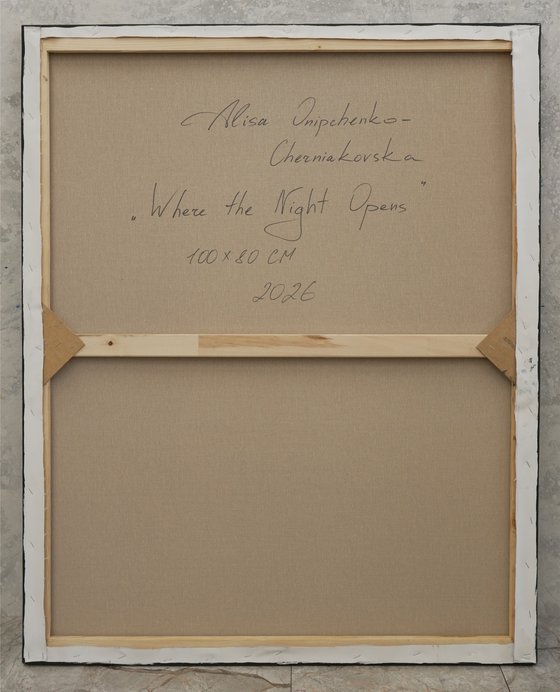 Alisa Onipchenko-
Cherniakovska
„Where the Night Opens"
100 x 80 CM
2026